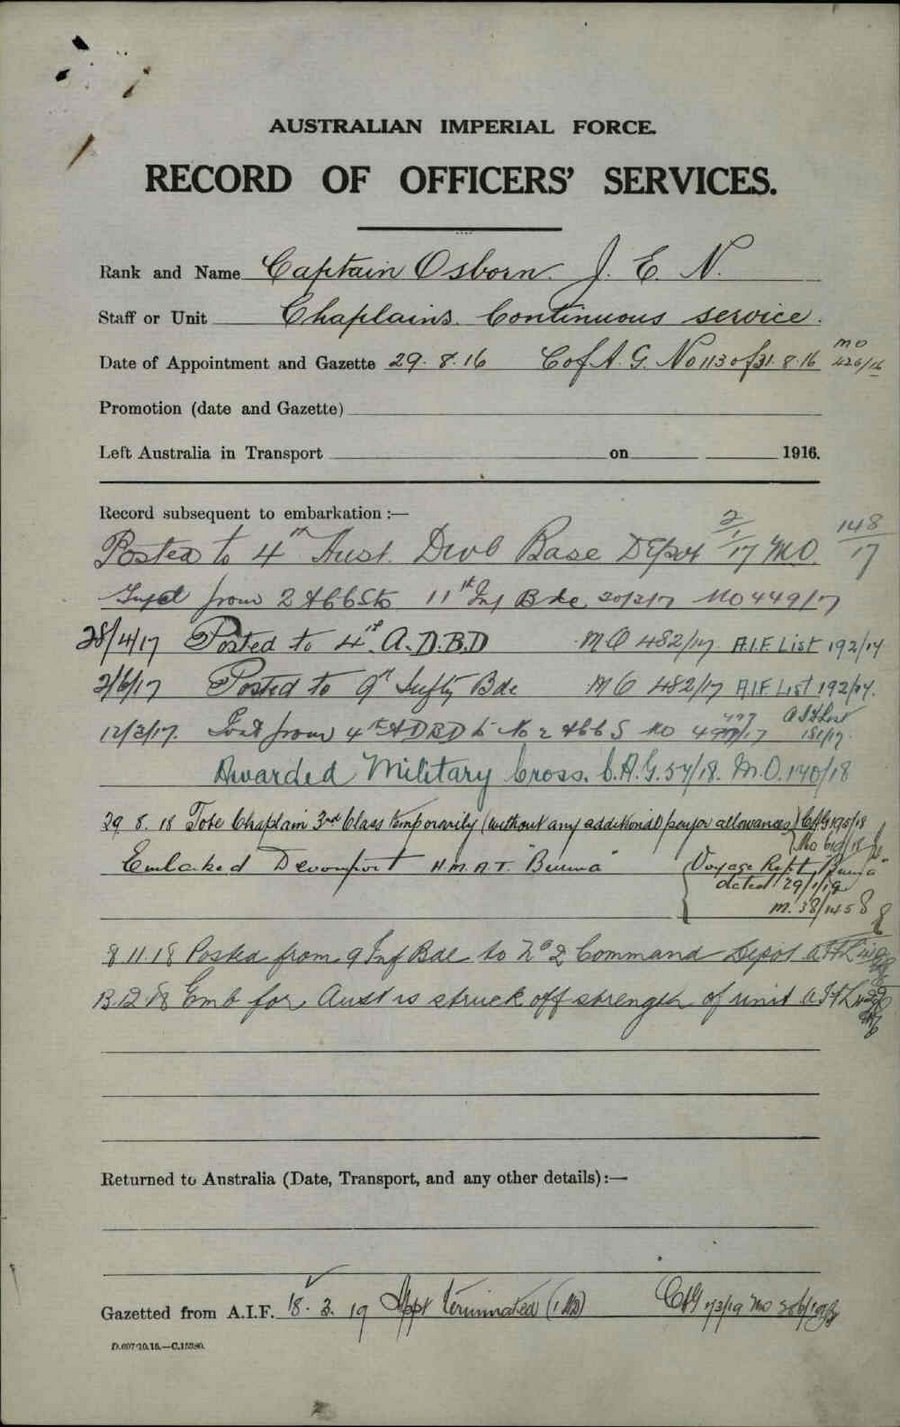 AUSTRALIAN IMPERIAL FORCE.
RECORD OF OFFICERS' SERVICES.
Rank and Name Captain Osborn. J. E. N.
Staff or Unit Chaplains. Continuous service.
Date of Appointment and Gazette 29.8.16 C of A. G. No 113 of 31.8.16 MO 426/16
Promotion (date and Gazette)
Left Australia in Transport on 1916.
Record subsequent to embarkation :—
Posted to 4th Aust. Divl Base Depot 2/1/17 MO. 148/17
from 2 11th Inf Bde, 20/2/17 MO 449/17
28/4/17 Posted to 4th A.D.B.D MO 482/17 A.I.F List 192/17
2/6/17 Posted to 9th Bde MO 482/17 AIF List 192/17.
12/3/17. from 4th ADBD to No 2 MO 181/17
Awarded Military Cross. C.A.G. 57/18. M.O. 140/18
29.8.18 To be Chaplain 3rd Class temporarily (without any additional pay or allowances) CAG 195/18
Embarked Devonport H.M.A.T. "Voyage Rept.
dated 29/1/19
m. 38/1458
8 11.18 Posted from 9 Inf Bde to No 2 Command Depot
Emb for Aust is struck off strength of unit
Returned to Australia (Date, Transport, and any other details):—
Gazetted from A.I.F. 18.3.19 Appt terminated CAG